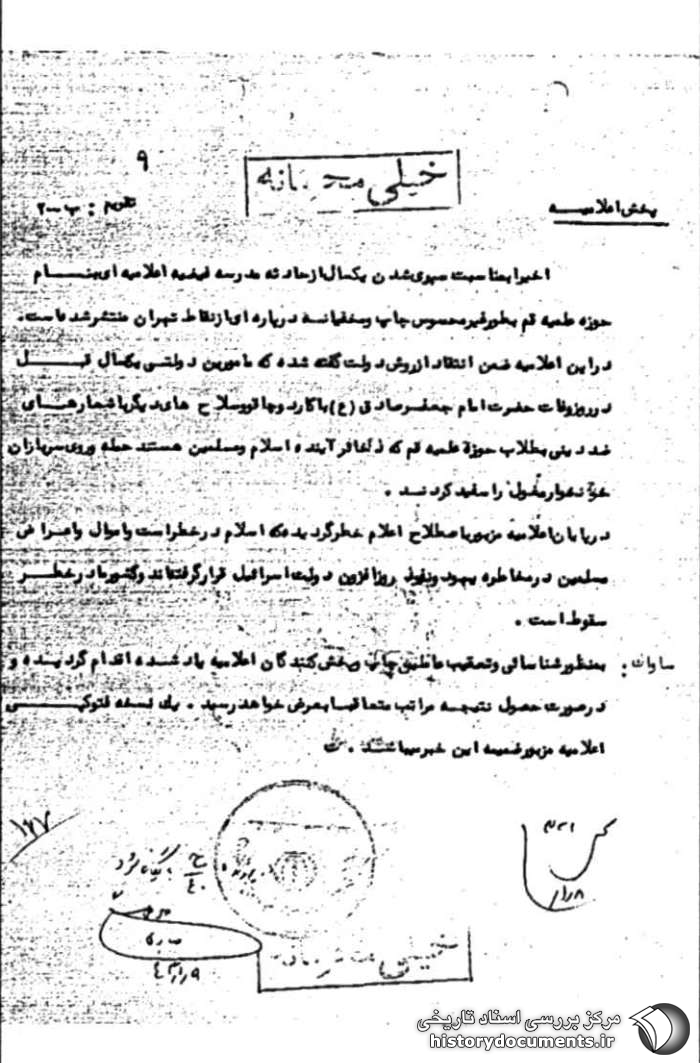 ۹
خیلی محرمانه
تقویم : ب-۲۰۰
پخش اعلامیـــه
اخیرا بمناسبت سپری شدن یکسال از حادثه مدرسه فیضیه اعلامیه ای بنـــام
حوزه علمیه قم بطور غیر محسوس چاپ و مخفیانـه در پاره ای از نقاط تهران منتشر شده است .
در این اعلامیه ضمن انتقاد از روش دولت گفته شده که مامورین دولتـی یکسال قبـــل
در روز وفات حضرت امام جعفر صادق (ع) با کارد و چاقو و سلاح های دیگر با شعارهـــای
ضد دینی بطلاب حوزة علمیه قم که ذخائر آینده اسلام و مسلمین هستند حمله و روی سربازان
خونخوار مغول را سفید کردنــد .
در پایان اعلامیه مزبور باصطلاح اعلام خطر گردیده که اسلام در خطر است و اموال و اعراض
مسلمین در مخاطره یهود و نفوذ روز افزون دولت اسرائیل قرار گرفته اند و کشور ما در خطـــر
سقوط است .
ساواک : بمنظور شناسائی و تعقیب عاملین چاپ و پخش کنندگان اعلامیه یاد شـــده اقدام گردیـده و
در صورت حصول نتیجـه مراتب متعاقبا بعرض خواهد رسید . یک نسخه فتوکپـــی
اعلامیه مزبور ضمیمه این خبر میباشـــد . ث
خیلی محرمانه
مرکز بررسی اسناد تاریخی
historydocuments.ir